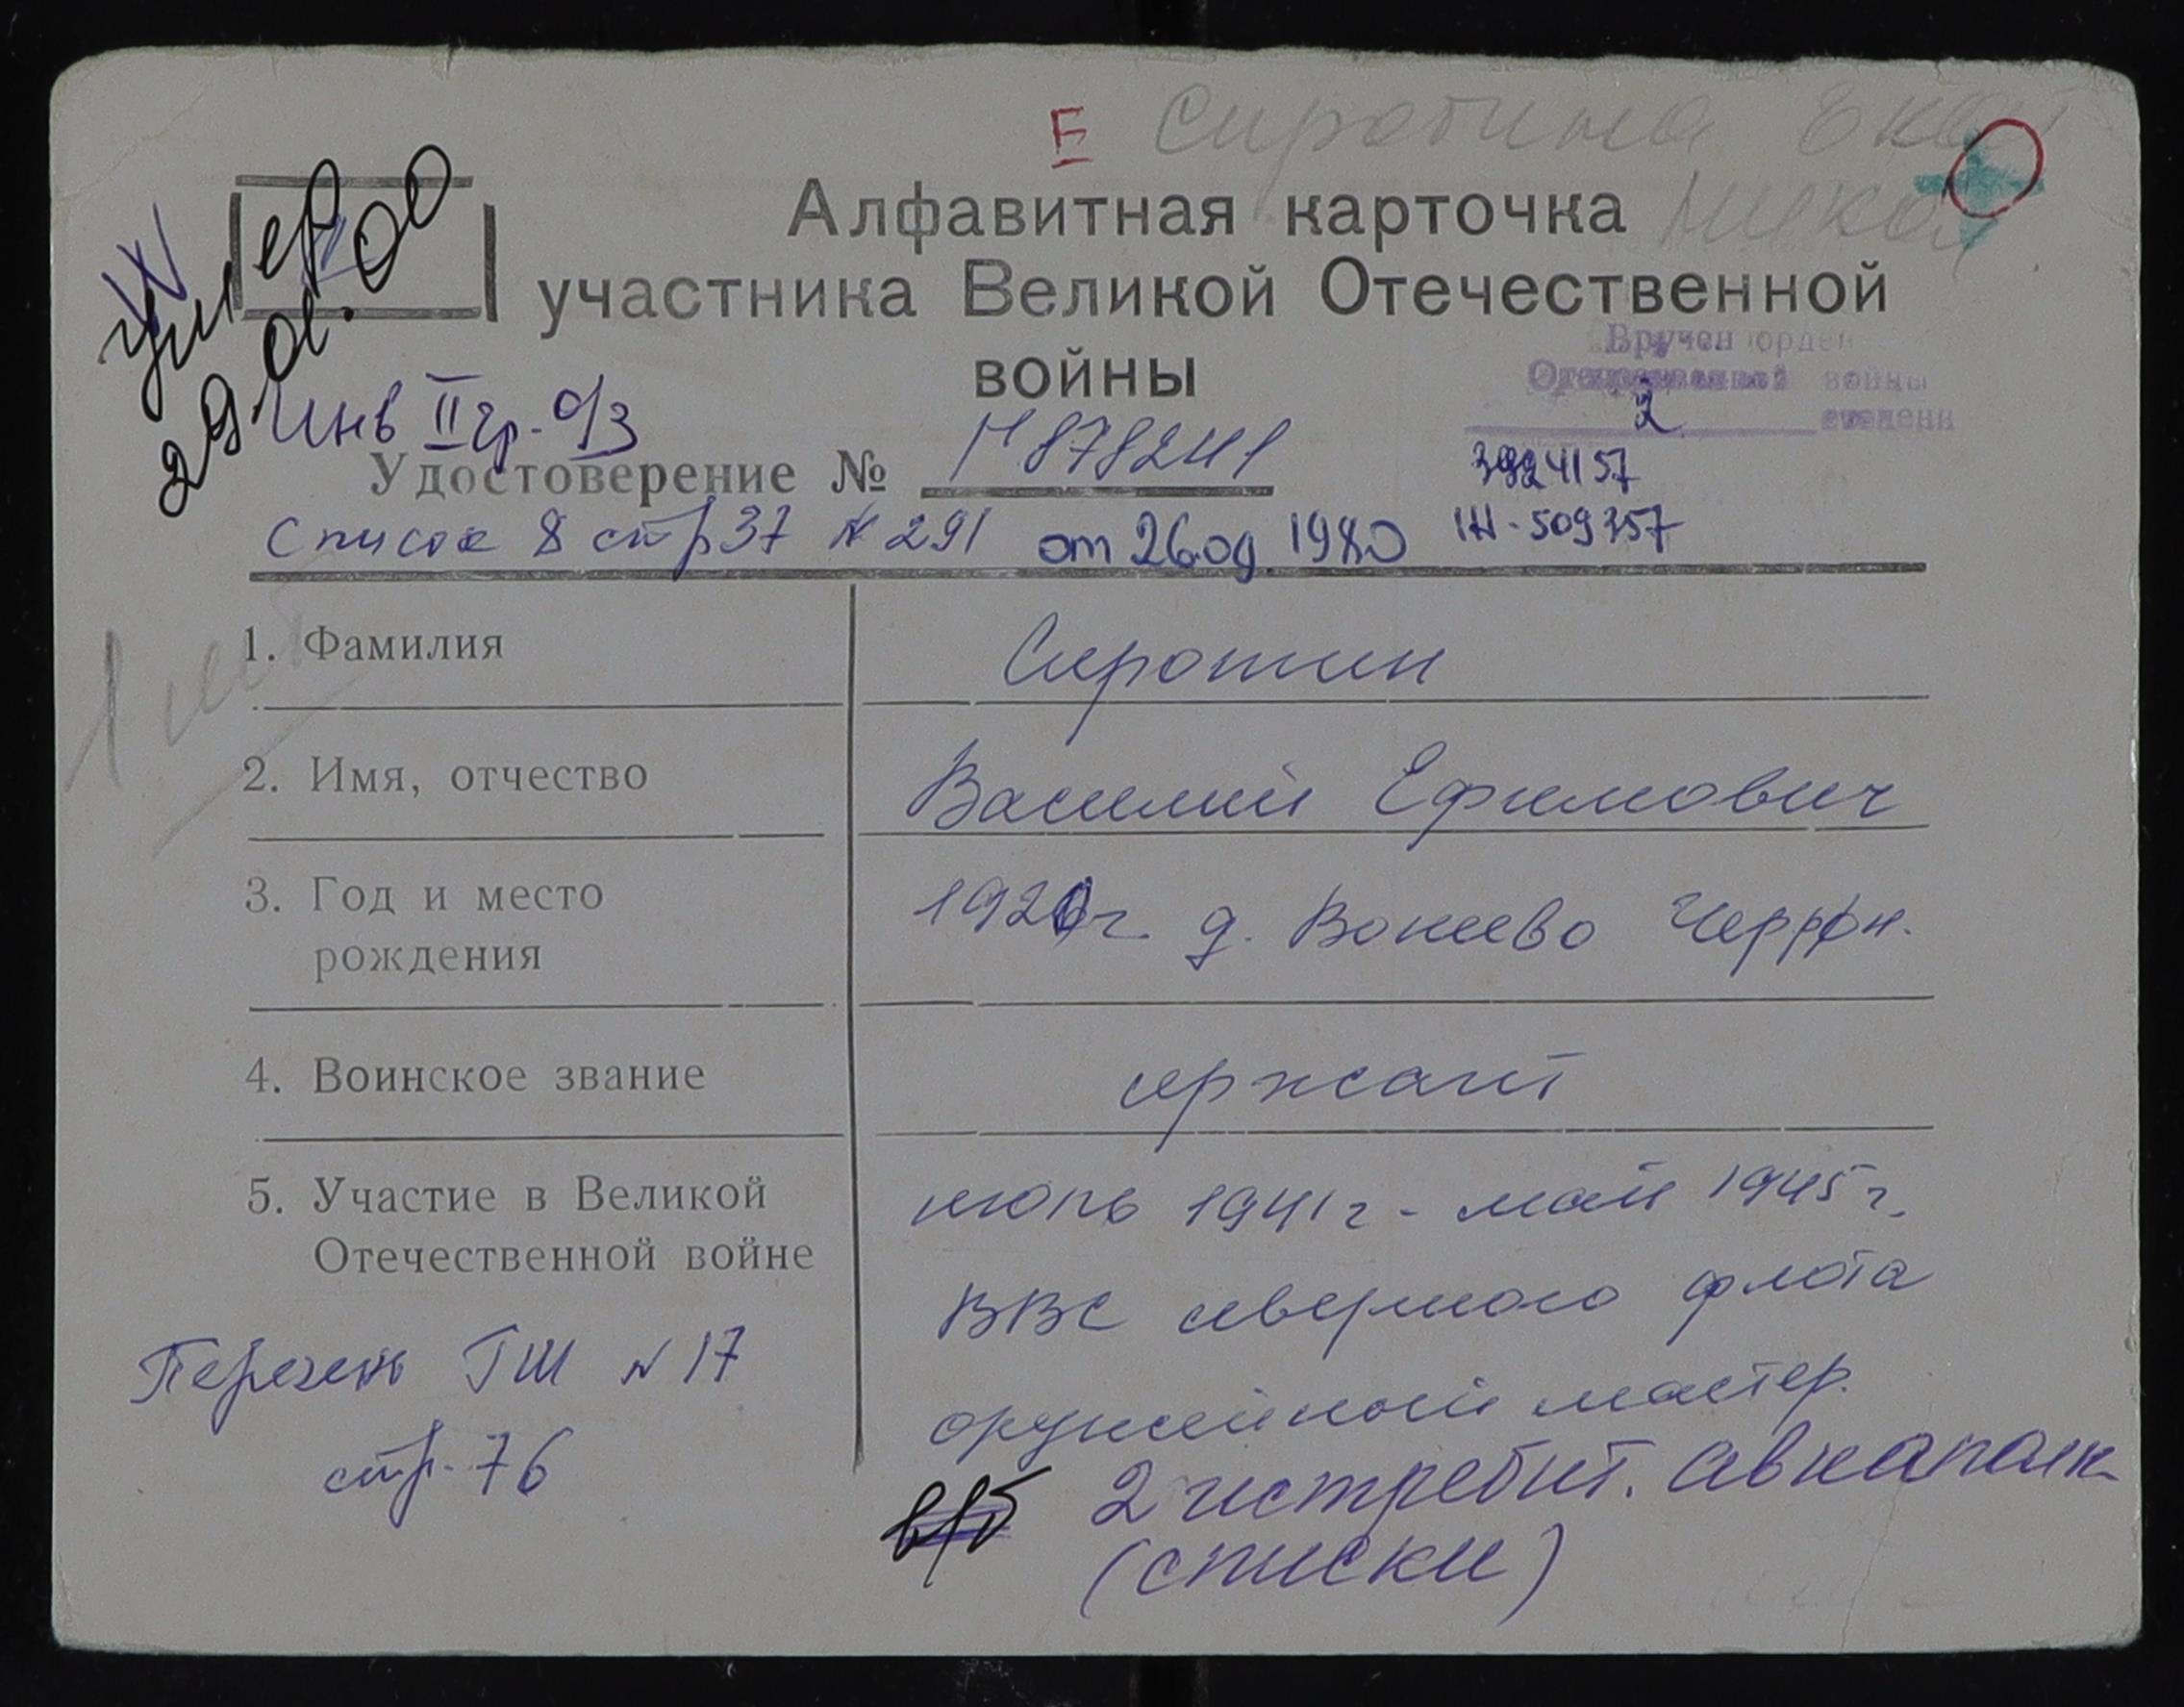 Е Сиротина Екат
Никол
умер
29.01.00
Алфавитная карточка
участника Великой Отечественной
войны
Вручен орден
Отечественной войны
2 степени
Инв II гр. о/з
Удостоверение №
3924157
Список 8 стр 37 № 291 от 26.09.1980
1. Фамилия Сиротин
2. Имя, отчество Василий Ефимович
3. Год и место г. д.
рождения
4. Воинское звание сержант
5. Участие в Великой 1941г - май 1945г.
Отечественной войне ВВС северного флота
Перечень ГШ № 17
стр. 76
оружейный мастер.
2 истребит. авиаполк
(списки)